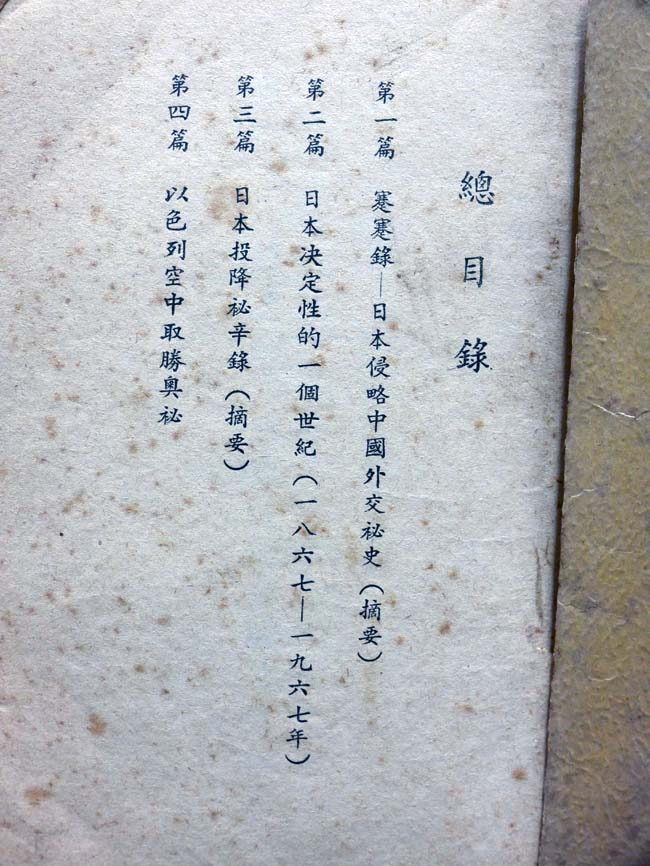 總目錄
第一篇 蹇蹇錄—日本侵略中國外交祕史(摘要)
第二篇 日本決定性的一個世紀(一八六七—一九六七年)
第三篇 日本投降祕辛錄(摘要)
第四篇 以色列空中取勝奧祕